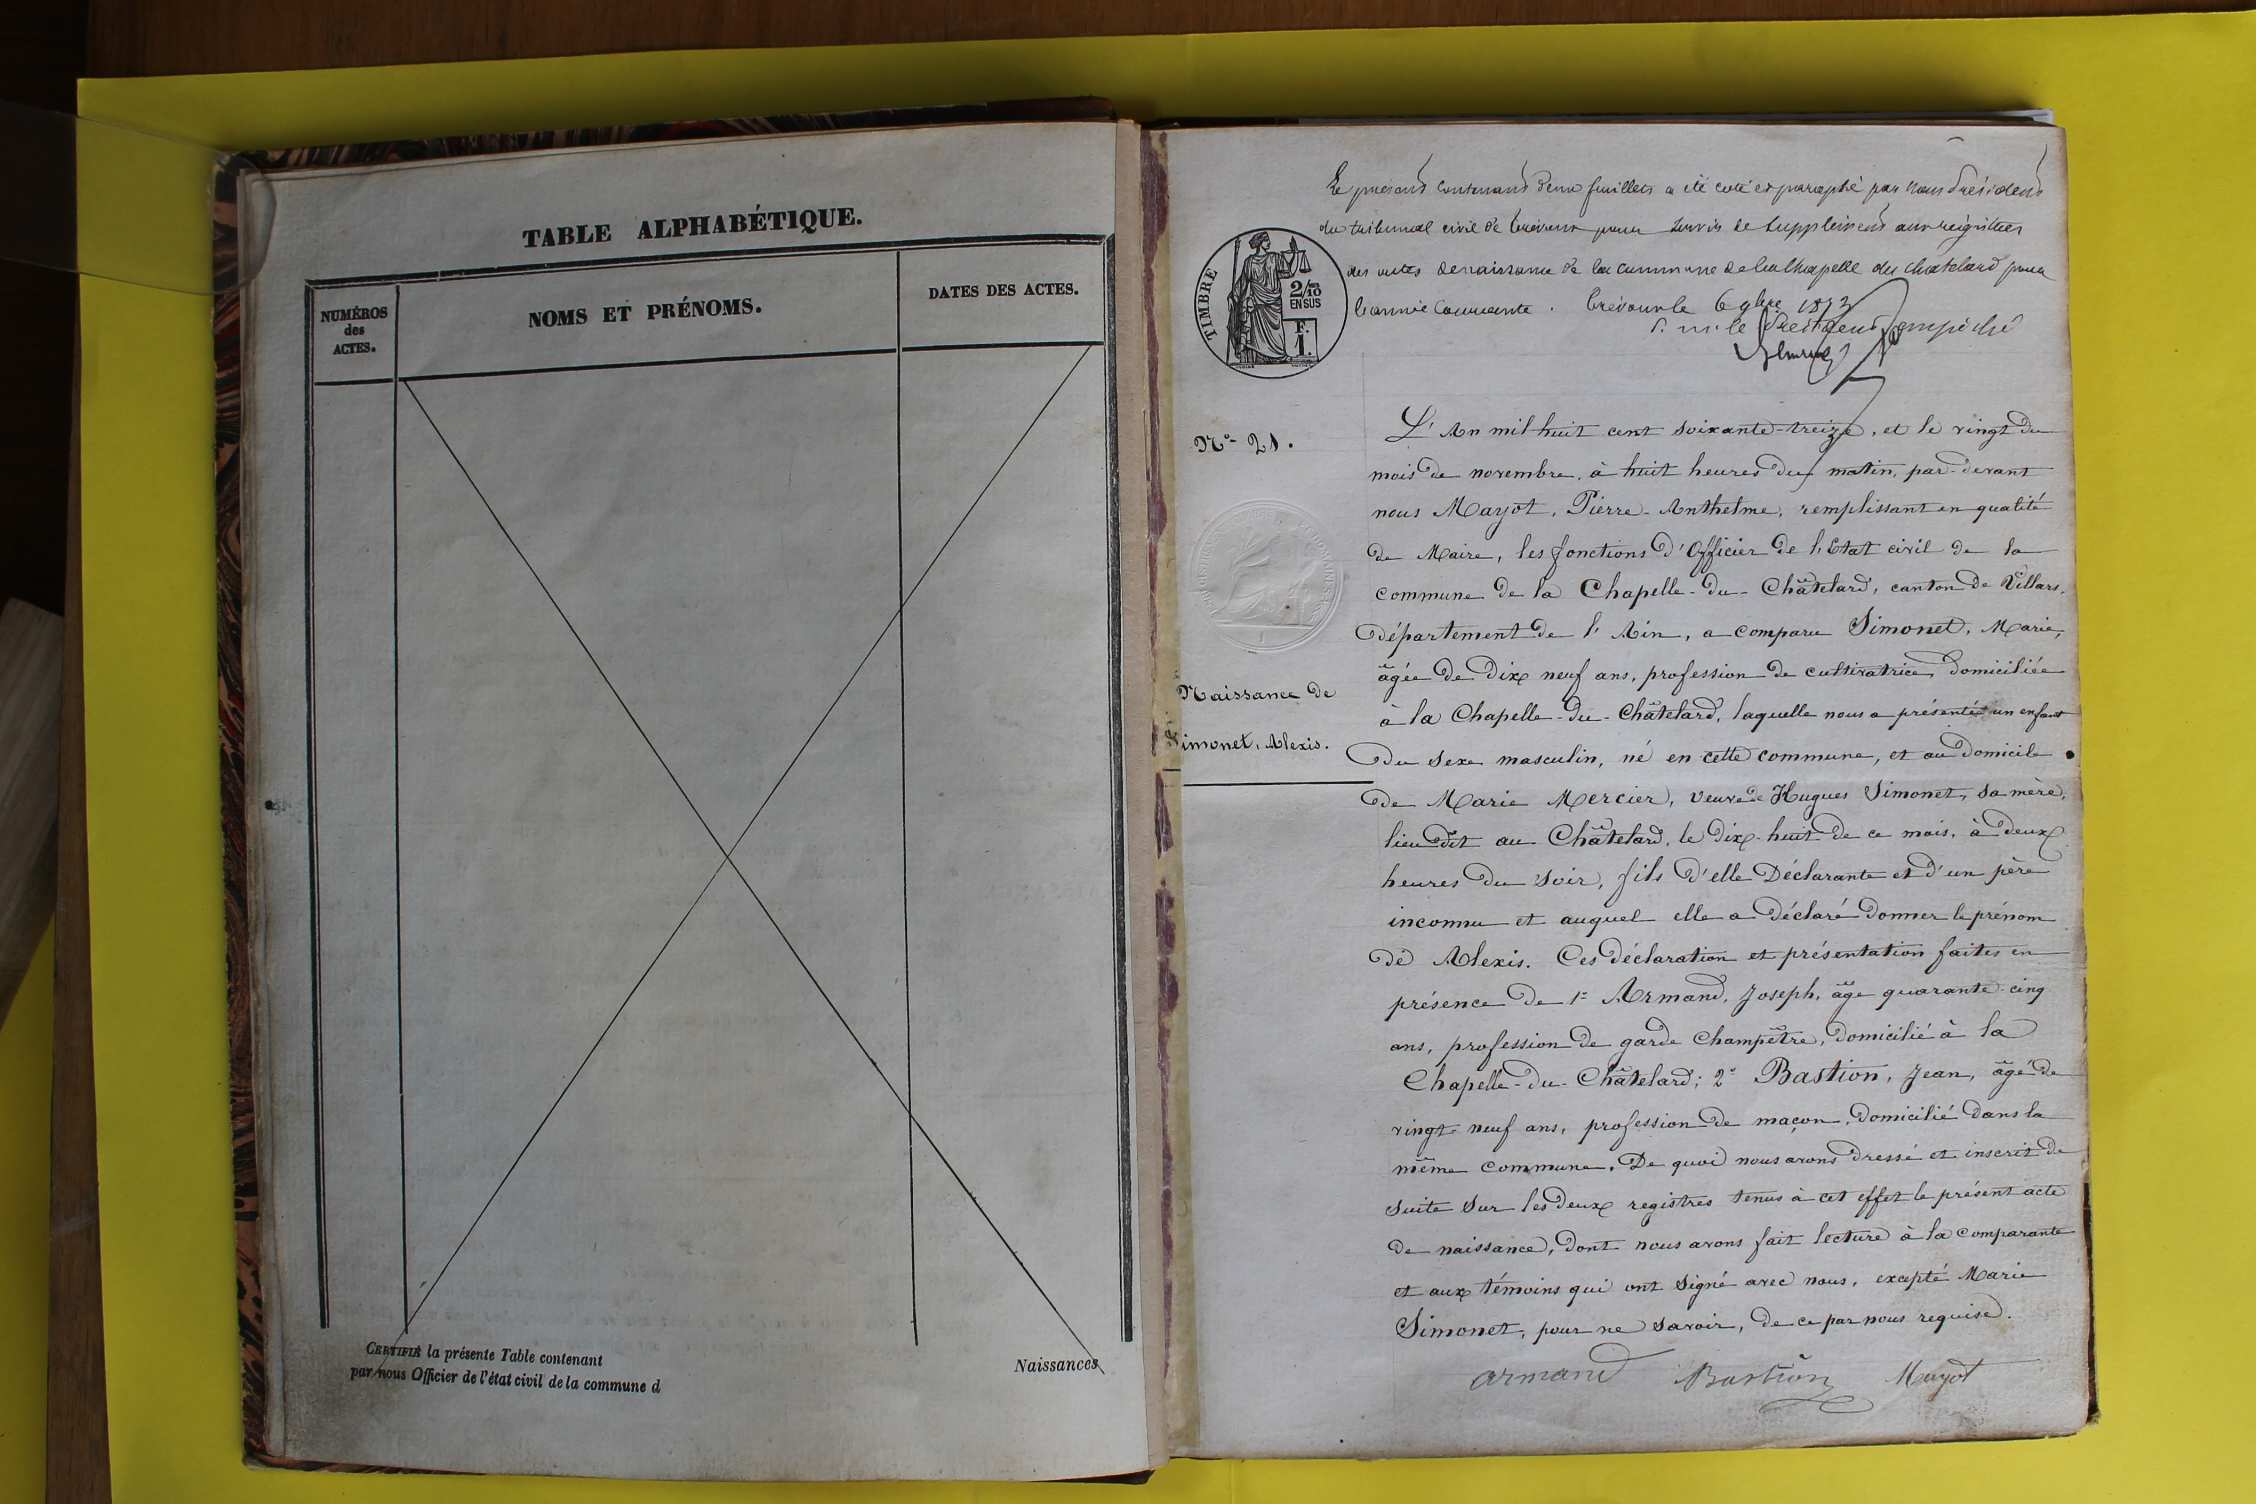 TABLE ALPHABÉTIQUE.
NUMÉROS
des
ACTES.
NOMS ET PRÉNOMS.
DATES DES ACTES.
CERTIFIÉ la présente Table contenant
Naissances
par nous Officier de l'état civil de la commune d
Le présent contenant deux feuillets a été coté et paraphé par nous Président
du tribunal civil de Trévoux pour servir de supplément aux régistres
des actes de naissance de la commune de la Chapelle du Chatelard pour
l'année courante. Trévoux le 6 9bre 1873
P. m. le Président empêché
TIMBRE
2/10
EN SUS
F.
1.
N° 21.
Naissance de
Simonet, Alexis.
L'An mil huit cent soixante-treize, et le vingt du
mois de novembre, à huit heures du matin, par-devant
nous Mayot, Pierre-Anthelme, remplissant en qualité
de Maire, les fonctions d'Officier de l'Etat civil de la
commune de la Chapelle-du-Châtelard, canton de Villars,
département de l'Ain, a comparu Simonet, Marie,
âgée de dix neuf ans, profession de cultivatrice, domiciliée
à la Chapelle-du-Châtelard, laquelle nous a présenté un enfant
du sexe masculin, né en cette commune, et au domicile
de Marie Mercier, veuve de Hugues Simonet, sa mère,
lieu dit au Châtelard, le dix-huit de ce mois, à deux
heures du soir, fils d'elle Déclarante et d'un père
inconnu et auquel elle a déclaré donner le prénom
de Alexis. Ces déclaration et présentation faites en
présence de 1° Armand, Joseph, âge quarante-cinq
ans, profession de garde Champêtre, domicilié à la
Chapelle-du-Châtelard; 2° Bastion, Jean, âgé de
vingt-neuf ans, profession de maçon, domicilié dans la
même commune. De quoi nous avons dressé et inscrit de
suite sur les deux registres tenus à cet effet le présent acte
de naissance, dont nous avons fait lecture à la comparante
et aux témoins qui ont signé avec nous, excepté Marie
Simonet, pour ne savoir, de ce par nous requise.
armand Bastion Mayot